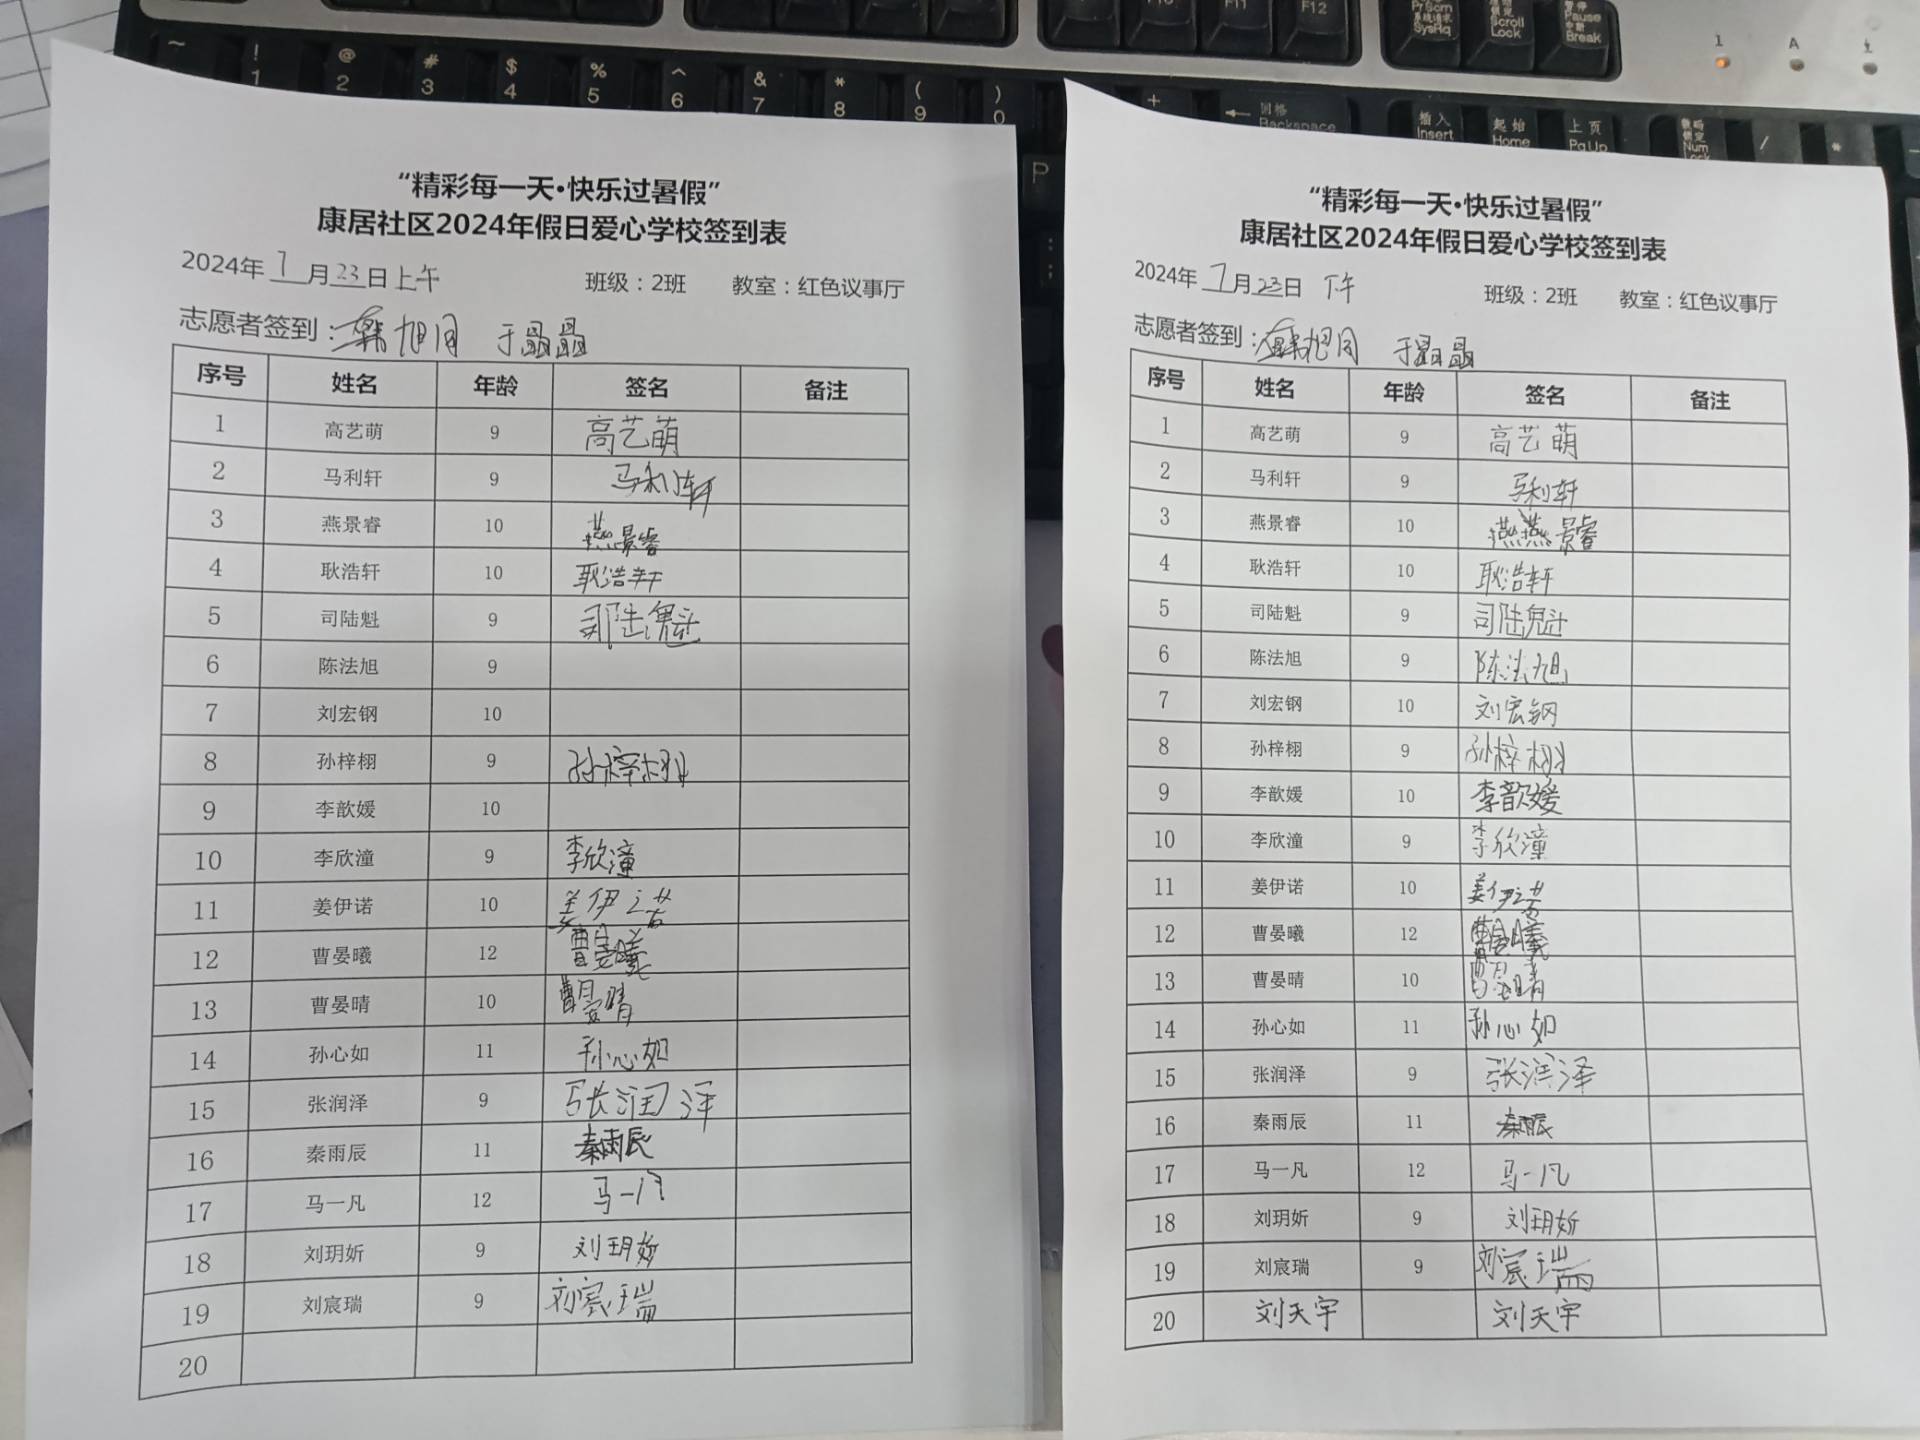 ~ ! 1 @ 2 # 3 $ 4 % 5 ^ 6 & 7 * 8 ( 9 ) 0 +
F11 F12
PrScrn 系统请求 SysRq
Scroll Lock
暂停 Pause Break
1 A
回格 Backspace
插入 Insert
起始 Home
上页 PgUp
数码锁定 Num Lock
/ *
P
“精彩每一天·快乐过暑假”
康居社区2024年假日爱心学校签到表
2024年7月23日上午 班级：2班 教室：红色议事厅
志愿者签到：韩旭同 于晶晶
序号 姓名 年龄 签名 备注
1 高艺萌 9 高艺萌
2 马利轩 9 马利轩
3 燕景睿 10 燕景睿
4 耿浩轩 10 耿浩轩
5 司陆魁 9 司陆魁
6 陈法旭 9
7 刘宏钢 10
8 孙梓栩 9 孙梓栩
9 李歆媛 10
10 李欣潼 9 李欣潼
11 姜伊诺 10 姜伊诺
12 曹晏曦 12 曹晏曦
13 曹晏晴 10 曹晏晴
14 孙心如 11 孙心如
15 张润泽 9 张润泽
16 秦雨辰 11 秦雨辰
17 马一凡 12 马一凡
18 刘玥妡 9 刘玥妡
19 刘宸瑞 9 刘宸瑞
20
“精彩每一天·快乐过暑假”
康居社区2024年假日爱心学校签到表
2024年7月23日 下午 班级：2班 教室：红色议事厅
志愿者签到：韩旭同 于晶晶
序号 姓名 年龄 签名 备注
1 高艺萌 9 高艺萌
2 马利轩 9 马利轩
3 燕景睿 10 燕燕景睿
4 耿浩轩 10 耿浩轩
5 司陆魁 9 司陆魁
6 陈法旭 9 陈法旭
7 刘宏钢 10 刘宏钢
8 孙梓栩 9 孙梓栩
9 李歆媛 10 李歆媛
10 李欣潼 9 李欣潼
11 姜伊诺 10 姜伊诺
12 曹晏曦 12 曹晏曦
13 曹晏晴 10 曹晏晴
14 孙心如 11 孙心如
15 张润泽 9 张润泽
16 秦雨辰 11 秦雨辰
17 马一凡 12 马一凡
18 刘玥妡 9 刘玥妡
19 刘宸瑞 9 刘宸瑞
20 刘天宇 刘天宇